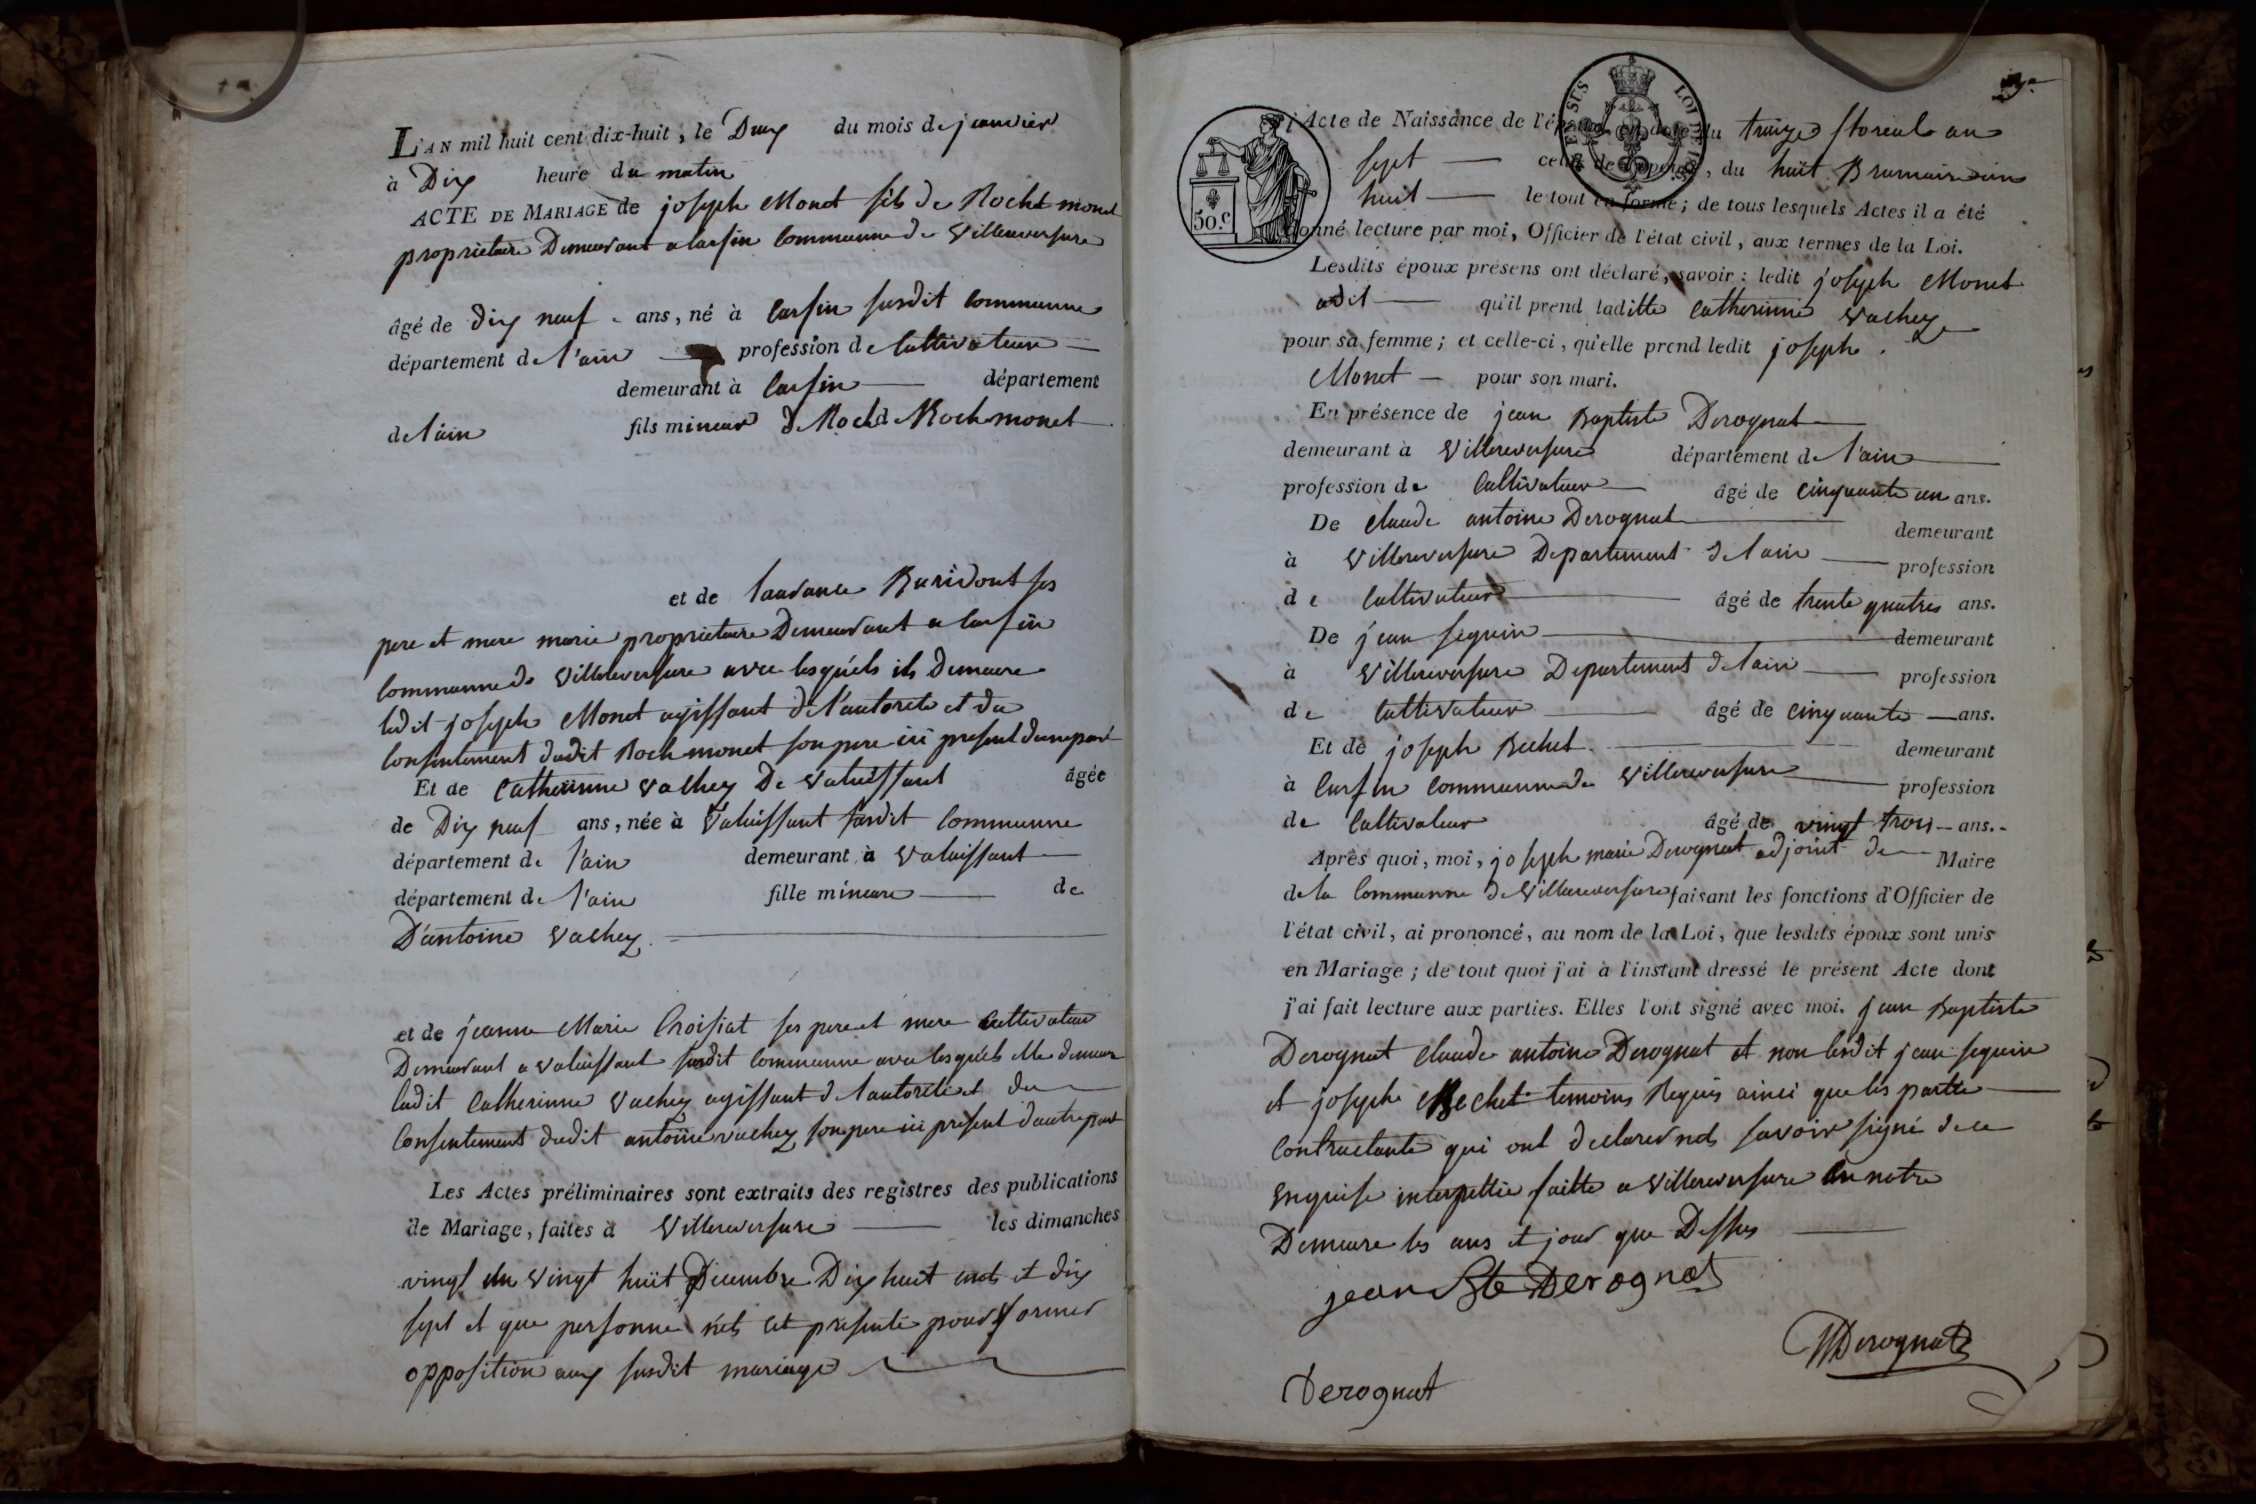 L'AN mil huit cent dix-huit, le Deux du mois de janvier
à Dix heure du matin
ACTE DE MARIAGE de joseph Monet fils de Roche monet
proprietaire Demeurant a larfin Commune de Villereversure
âgé de dix neuf ans, né à larfin susdit Commune
département de l'ain profession de Cultivateur
demeurant à larfin département
de l'ain fils mineur de Roch monet
et de ses
pere et mere marie proprietaire Demeurant a larfin
Commune de Villereversure avec lesquels ils Demeure
ledit joseph Monet agissant de l'autorete et du
Consentement dudit Roch monet son pere ici present
Et de Catherinne Vachez De Valuissant âgée
de Dix neuf ans, née à Valuissant susdit Commune
département de l'ain demeurant à Valuissant
département de l'ain fille mineure de
D'antoine Vachez
et de jeanne Marie Croisiat ses pere et mere Cultivateur
Demeurant a Valuissant susdit Commune avec lesquels elle demeure
ladit Catherinne Vachez agissant de l'autorete et du
Consentement dudit antoine vachez son pere ici present d'autre part
Les Actes préliminaires sont extraits des registres des publications
de Mariage, faites à Villereversure les dimanches
vingt un Vingt huit Decembre Dix huit cent et dix
sept et que personne n'est set présenté pour former
opposition aux susdit mariage
50.C
l'Acte de Naissance de l'époux en date du treize floreal an
sept celui de l'épouse, du huit Brumaire an
huit le tout en forme; de tous lesquels Actes il a été
donné lecture par moi, Officier de l'état civil, aux termes de la Loi.
Lesdits époux présens ont déclaré, savoir: ledit joseph Monet
qu'il prend laditte Catherinne Vachez
pour sa femme; et celle-ci, qu'elle prend ledit joseph
Monet pour son mari.
En présence de jean Baptiste Derognat
demeurant à Villereversure département de l'ain
profession de Cultivateur âgé de cinquante un ans.
De Claude antoine Derognat demeurant
à Villereversure Departement de l'ain profession
de Cultivateur âgé de trente quatres ans.
De jean seguin demeurant
à Villereversure Departement de l'ain profession
de Cultivateur âgé de cinquante ans.
Et de joseph Bechet demeurant
à larfin Commune de Villereversure profession
de Cultivateur âgé de vingt trois ans.
Après quoi, moi, joseph marie Derognat adjoint de Maire
de la Commune de Villereversure faisant les fonctions d'Officier de
l'état civil, ai prononcé, au nom de la Loi, que lesdits époux sont unis
en Mariage; de tout quoi j'ai à l'instant dressé le présent Acte dont
j'ai fait lecture aux parties. Elles l'ont signé avec moi. jean Baptiste
Derognat Claude antoine Derognat et non lesdit jean seguin
et joseph Bechet temoins Requis ainsi que les partie
Contractante qui ont declarer ne savoir signé de ce
enquise interpellie faitte a Villereversure en notre
Demeure les ans et jour que Dessus
jean Bte Derognat
Derognat
Derognat